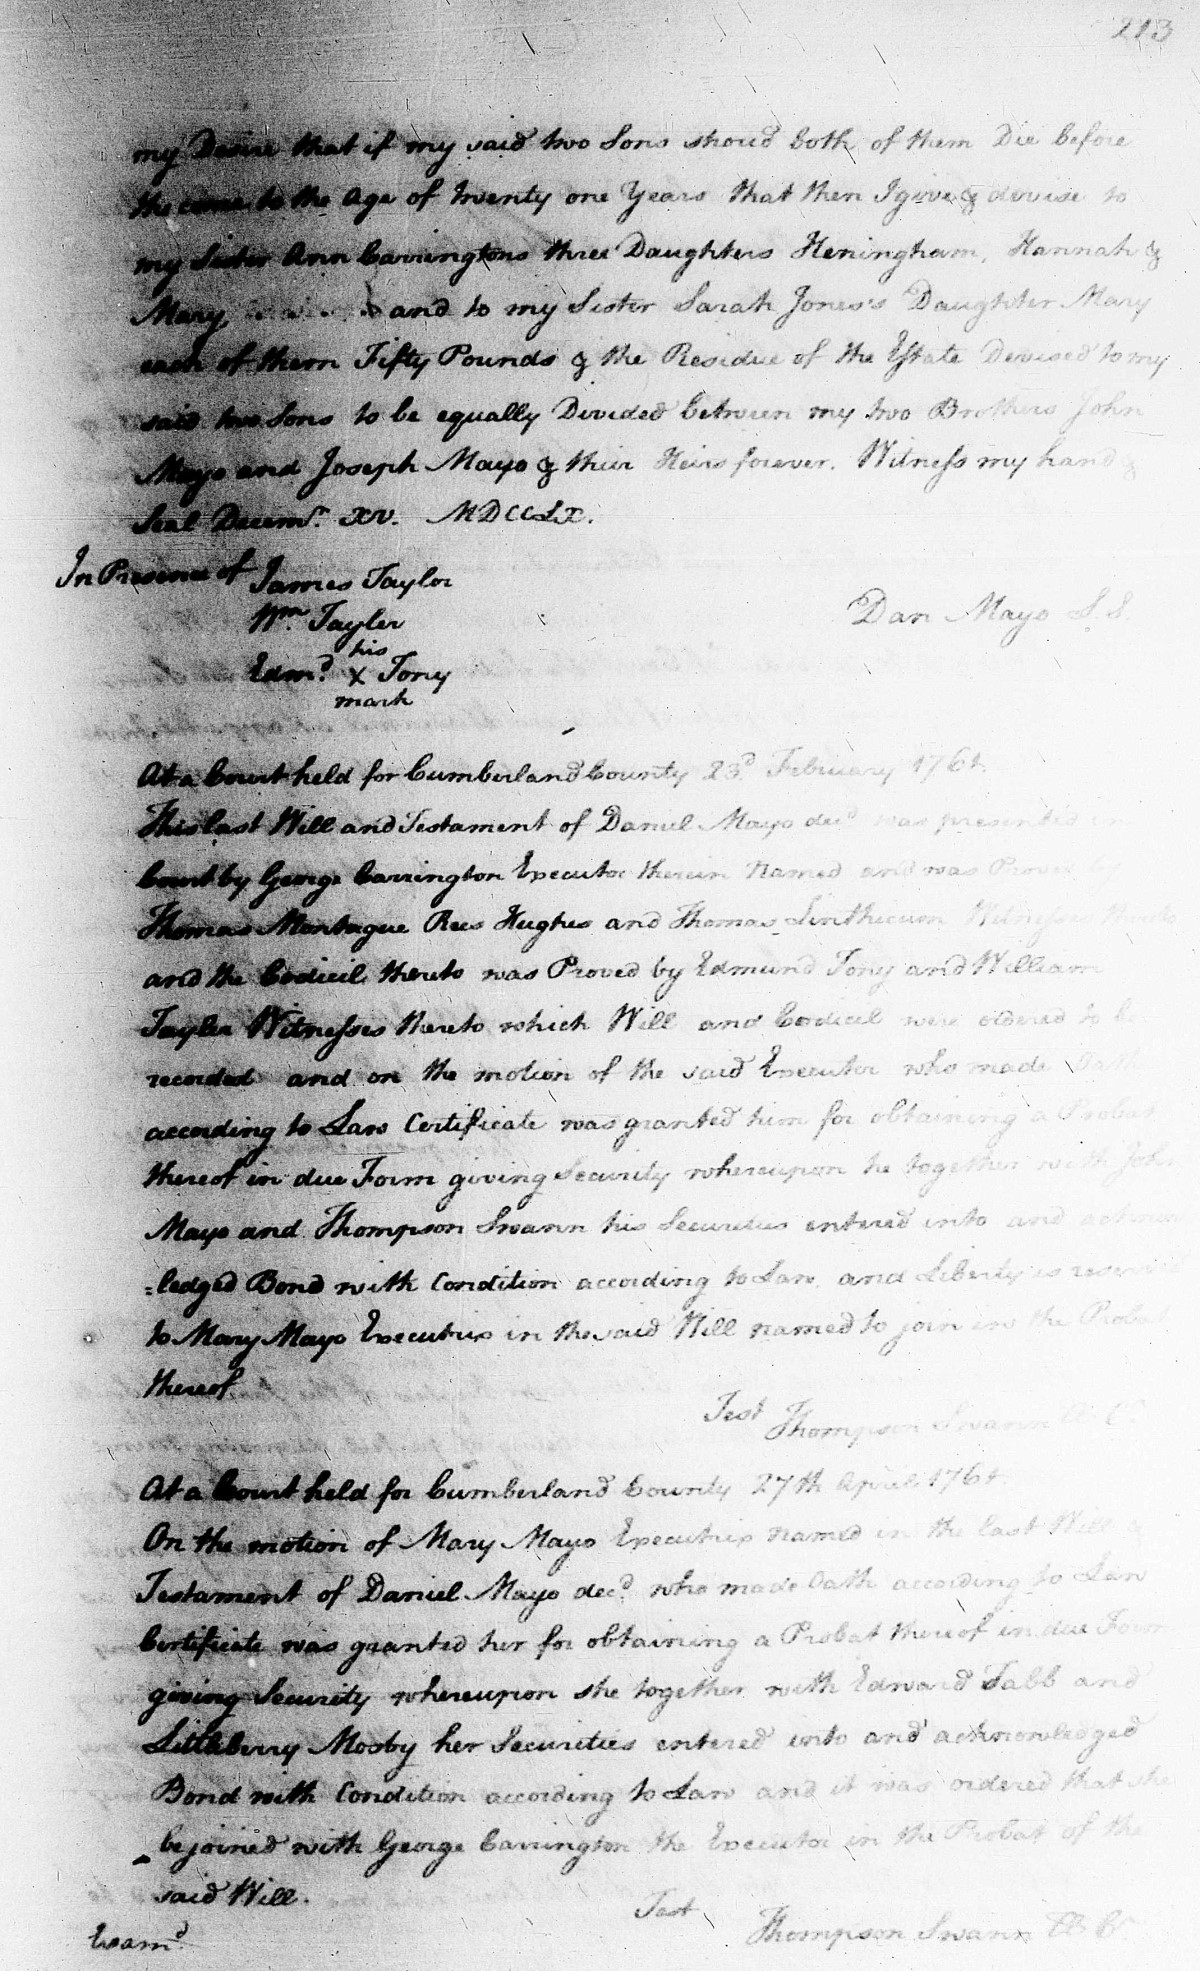 213
my Desire that if my said two Sons shoud both of them Die before
the come to the Age of twenty one Years that then I give & devise to
my Sister Ann Carringtons three Daughters Heningham, Hannah &
Mary, and to my Sister Sarah Jones's Daughter Mary
each of them Fifty Pounds & the Residue of the Estate Devised to my
said two Sons to be equally Divided between my two Brothers John
Mayo and Joseph Mayo & their Heirs forever. Witness my hand &
Seal Decemr. XV. MDCCLX.
In Presence of James Taylor
Wm. Tayler
Dan Mayo L.S.
his
Edmd. X Tony
mark
At a Court held for Cumberland County 23d February 1761.
This last Will and Testament of Daniel Mayo decd was presented in
Court by George Carrington Executor therein Named and was Proved by
Thomas Montague Rees Hughes and Thomas Linthecum Witnesses thereto
and the Codicil thereto was Proved by Edmund Tony and William
Tayler Witnesses thereto which Will and Codicil were ordered to be
recorded and on the motion of the said Executor who made Oath
according to Law Certificate was granted him for obtaining a Probat
thereof in due Form giving Security whereupon he together with John
Mayo and Thompson Swann his Securities entered into and acknow
=ledged Bond with Condition according to Law and Liberty is reserved
to Mary Mayo Executrix in the said Will named to join in the Probat
thereof
Test Thompson Swann Cl. Cr.
At a Court held for Cumberland County 27th April 1761.
On the motion of Mary Mayo Executrix named in the last Will &
Testament of Daniel Mayo decd. who made Oath according to Law
Certificate was granted her for obtaining a Probat thereof in due Form
giving Security whereupon she together with Edward Tabb and
Littleberry Mosby her Securities entered into and acknowledged
Bond with Condition according to Law and it was ordered that she
be joined with George Carrington the Executor in the Probat of the
said Will.
Test
Examd
Thompson Swann Cl Cr.